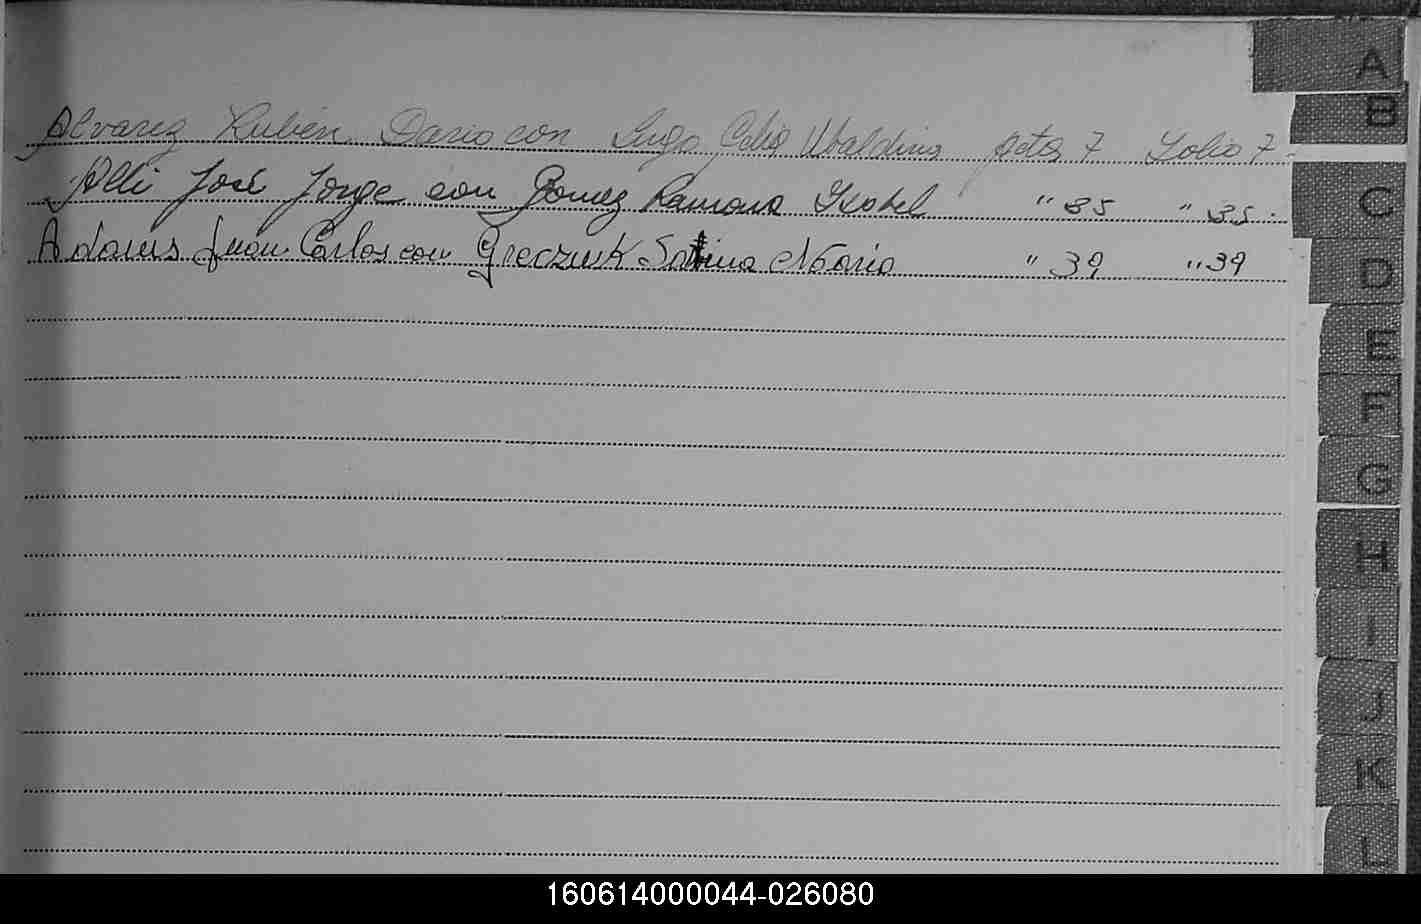 Alvarez Rubén Dario con Lugo Celia Ubaldina acta 7 Folio 7
Alli José Jorge con Gomez Ramona Isabel " 35 " 35.
Adams Juan Carlos con Greczuk Sabina Maria " 39 " 39
A
B
C
D
E
F
G
H
I
J
K
L
160614000044-026080